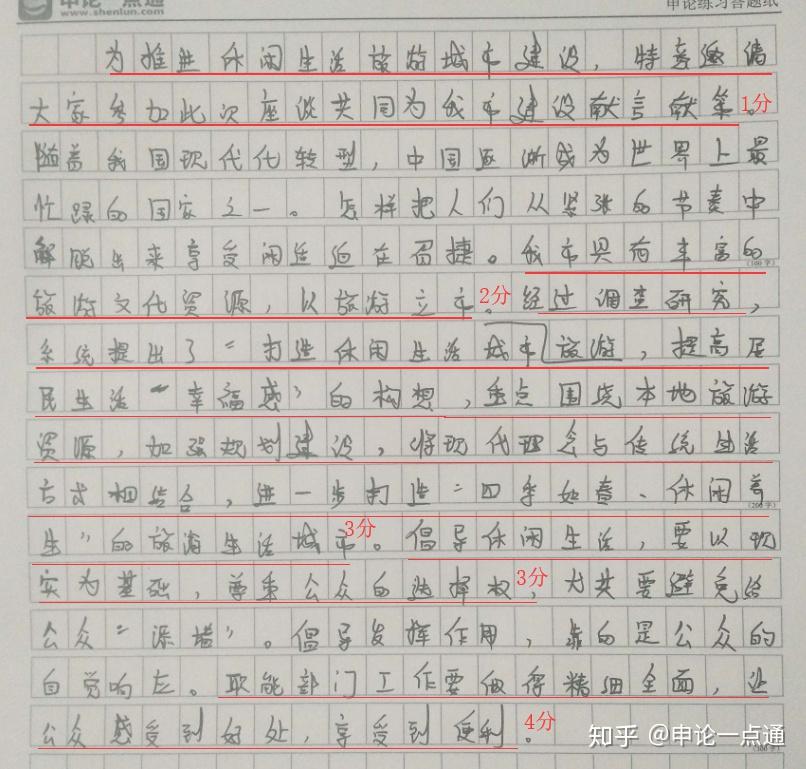 申论一点通
www.shenlun.com
申论练习答题纸
为推进休闲生活旅游城市建设，特意邀请
大家参加此次座谈共同为我市建设献言献策。1分
随着我国现代化转型，中国逐渐成为世界上最
忙碌的国家之一。怎样把人们从紧张的节奏中
解脱出来享受闲适迫在召捷。我市具有丰富的
(100字)
旅游文化资源，以旅游立市。2分 经过调查研究，
系统提出了“打造休闲生活城市旅游，提高居
民生活“幸福感”的构想，重点围绕本地旅游
资源，加强规划建设，将现代理念与传统生活
方式相结合，进一步打造“四季如春、休闲养
(200字)
生”的旅游生活城市。3分 倡导休闲生活，要以现
实为基础，尊重公众的选择权，3分 尤其要避免给
公众“添堵”。倡导发挥作用，靠的是公众的
自觉响应。职能部门工作要做得精细全面，让
公众感受到好处，享受到便利。4分
(300字)
知乎 @申论一点通